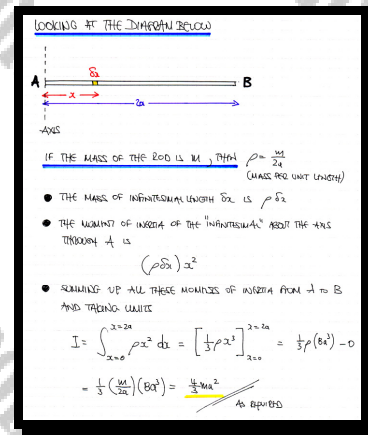 LOOKING AT THE DIAGRAM BELOW
δx
A B
x
2a
AXIS
IF THE MASS OF THE ROD IS m, THEN ρ = m/2a
(MASS PER UNIT LENGTH)
● THE MASS OF INFINITESIMAL LENGTH δx IS ρ δx
● THE MOMENT OF INERTIA OF THE "INFINITESIMAL" ABOUT THE AXIS
THROUGH A IS
(ρδx) x²
● SUMMING UP ALL THESE MOMENTS OF INERTIA FROM A TO B
AND TAKING LIMITS
I = ∫_{x=0}^{x=2a} ρx² dx = [⅓ρx³]_{x=0}^{x=2a} = ⅓ρ(8a³) - 0
= ⅓ (m/2a)(8a³) = 4/3 ma²
AS REQUIRED